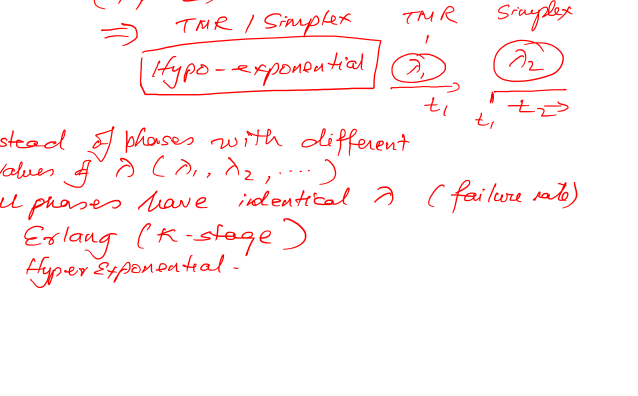 ⇒ TMR / Simplex TMR Simplex
Hypo-exponential λ₁ λ₂
t₁ t₁ t₂
stead of phases with different
values of λ (λ₁, λ₂, ....)
ll phases have indentical λ (failure rate)
Erlang (K-stage)
HyperExponential.